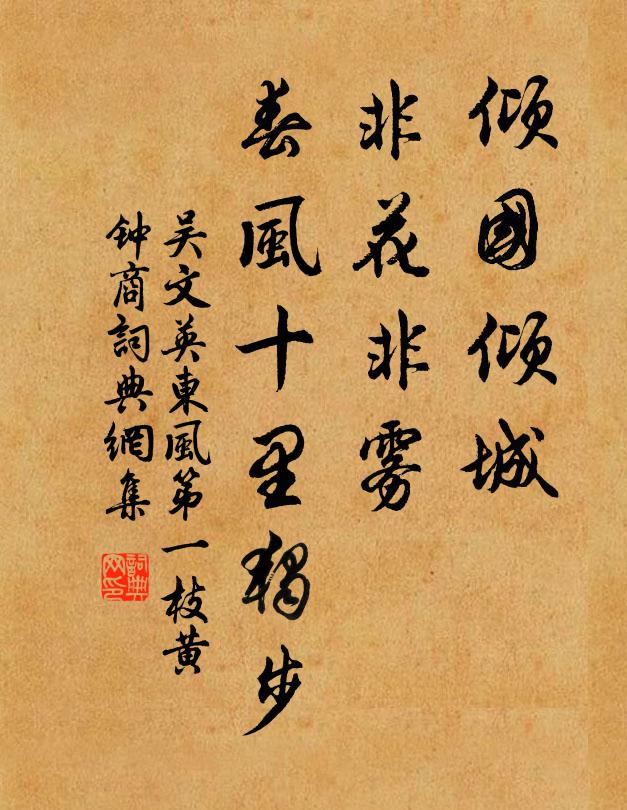 傾國傾城
非花非霧
春風十里獨步
吴文英東風第一枝黄
钟商詞典網集
詞典网印